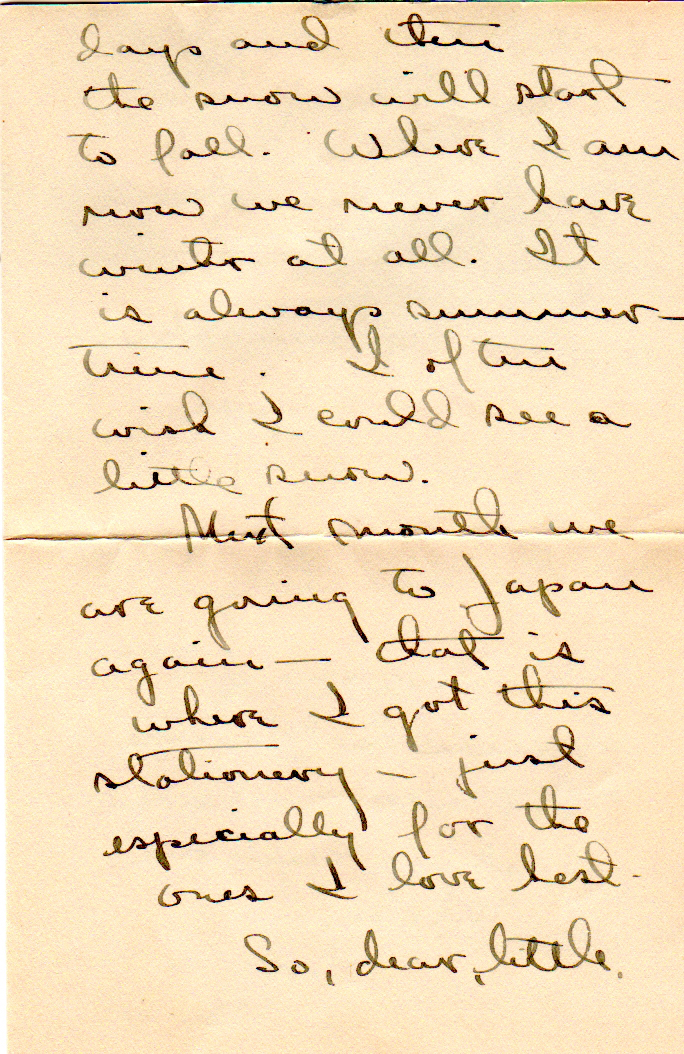 days and then
the snow will start
to fall. Where I am
now we never have
winter at all. It
is always summer-
time. I often
wish I could see a
little snow.
Next month we
are going to Japan
again — that is
where I got this
stationery — just
especially for the
ones I love best.
So, dear, little